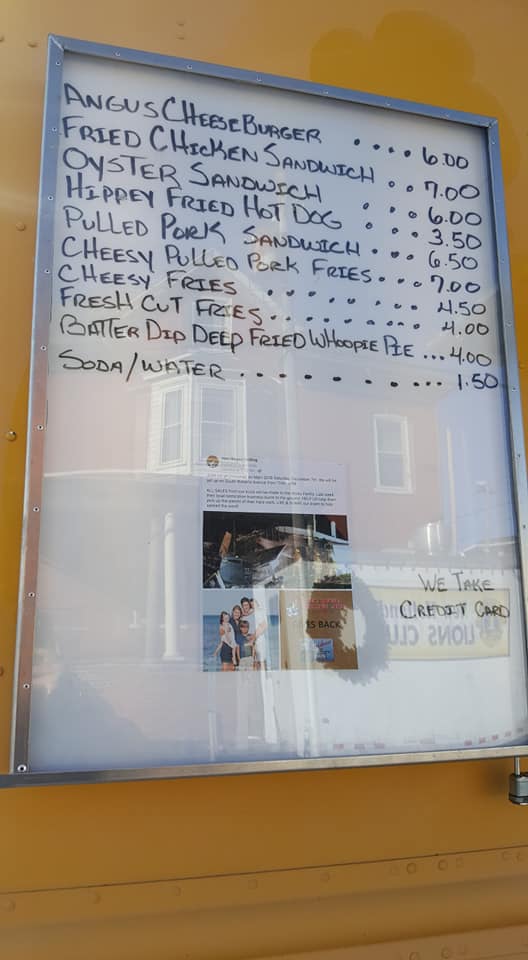 ANGUS CHEESEBURGER .... 6.00
FRIED CHICKEN SANDWICH .. 7.00
OYSTER SANDWICH ... 6.00
HIPPEY FRIED HOT DOG ... 3.50
PULLED PORK SANDWICH ... 6.50
CHEESY PULLED PORK FRIES... 7.00
CHEESY FRIES ...... 4.50
FRESH CUT FRIES......... 4.00
BATTER DIP DEEP FRIED WHOOPIE PIE ... 4.00
SODA/WATER ......... 1.50
WE TAKE
CREDIT CARD
ES BACK
LIONS CLU